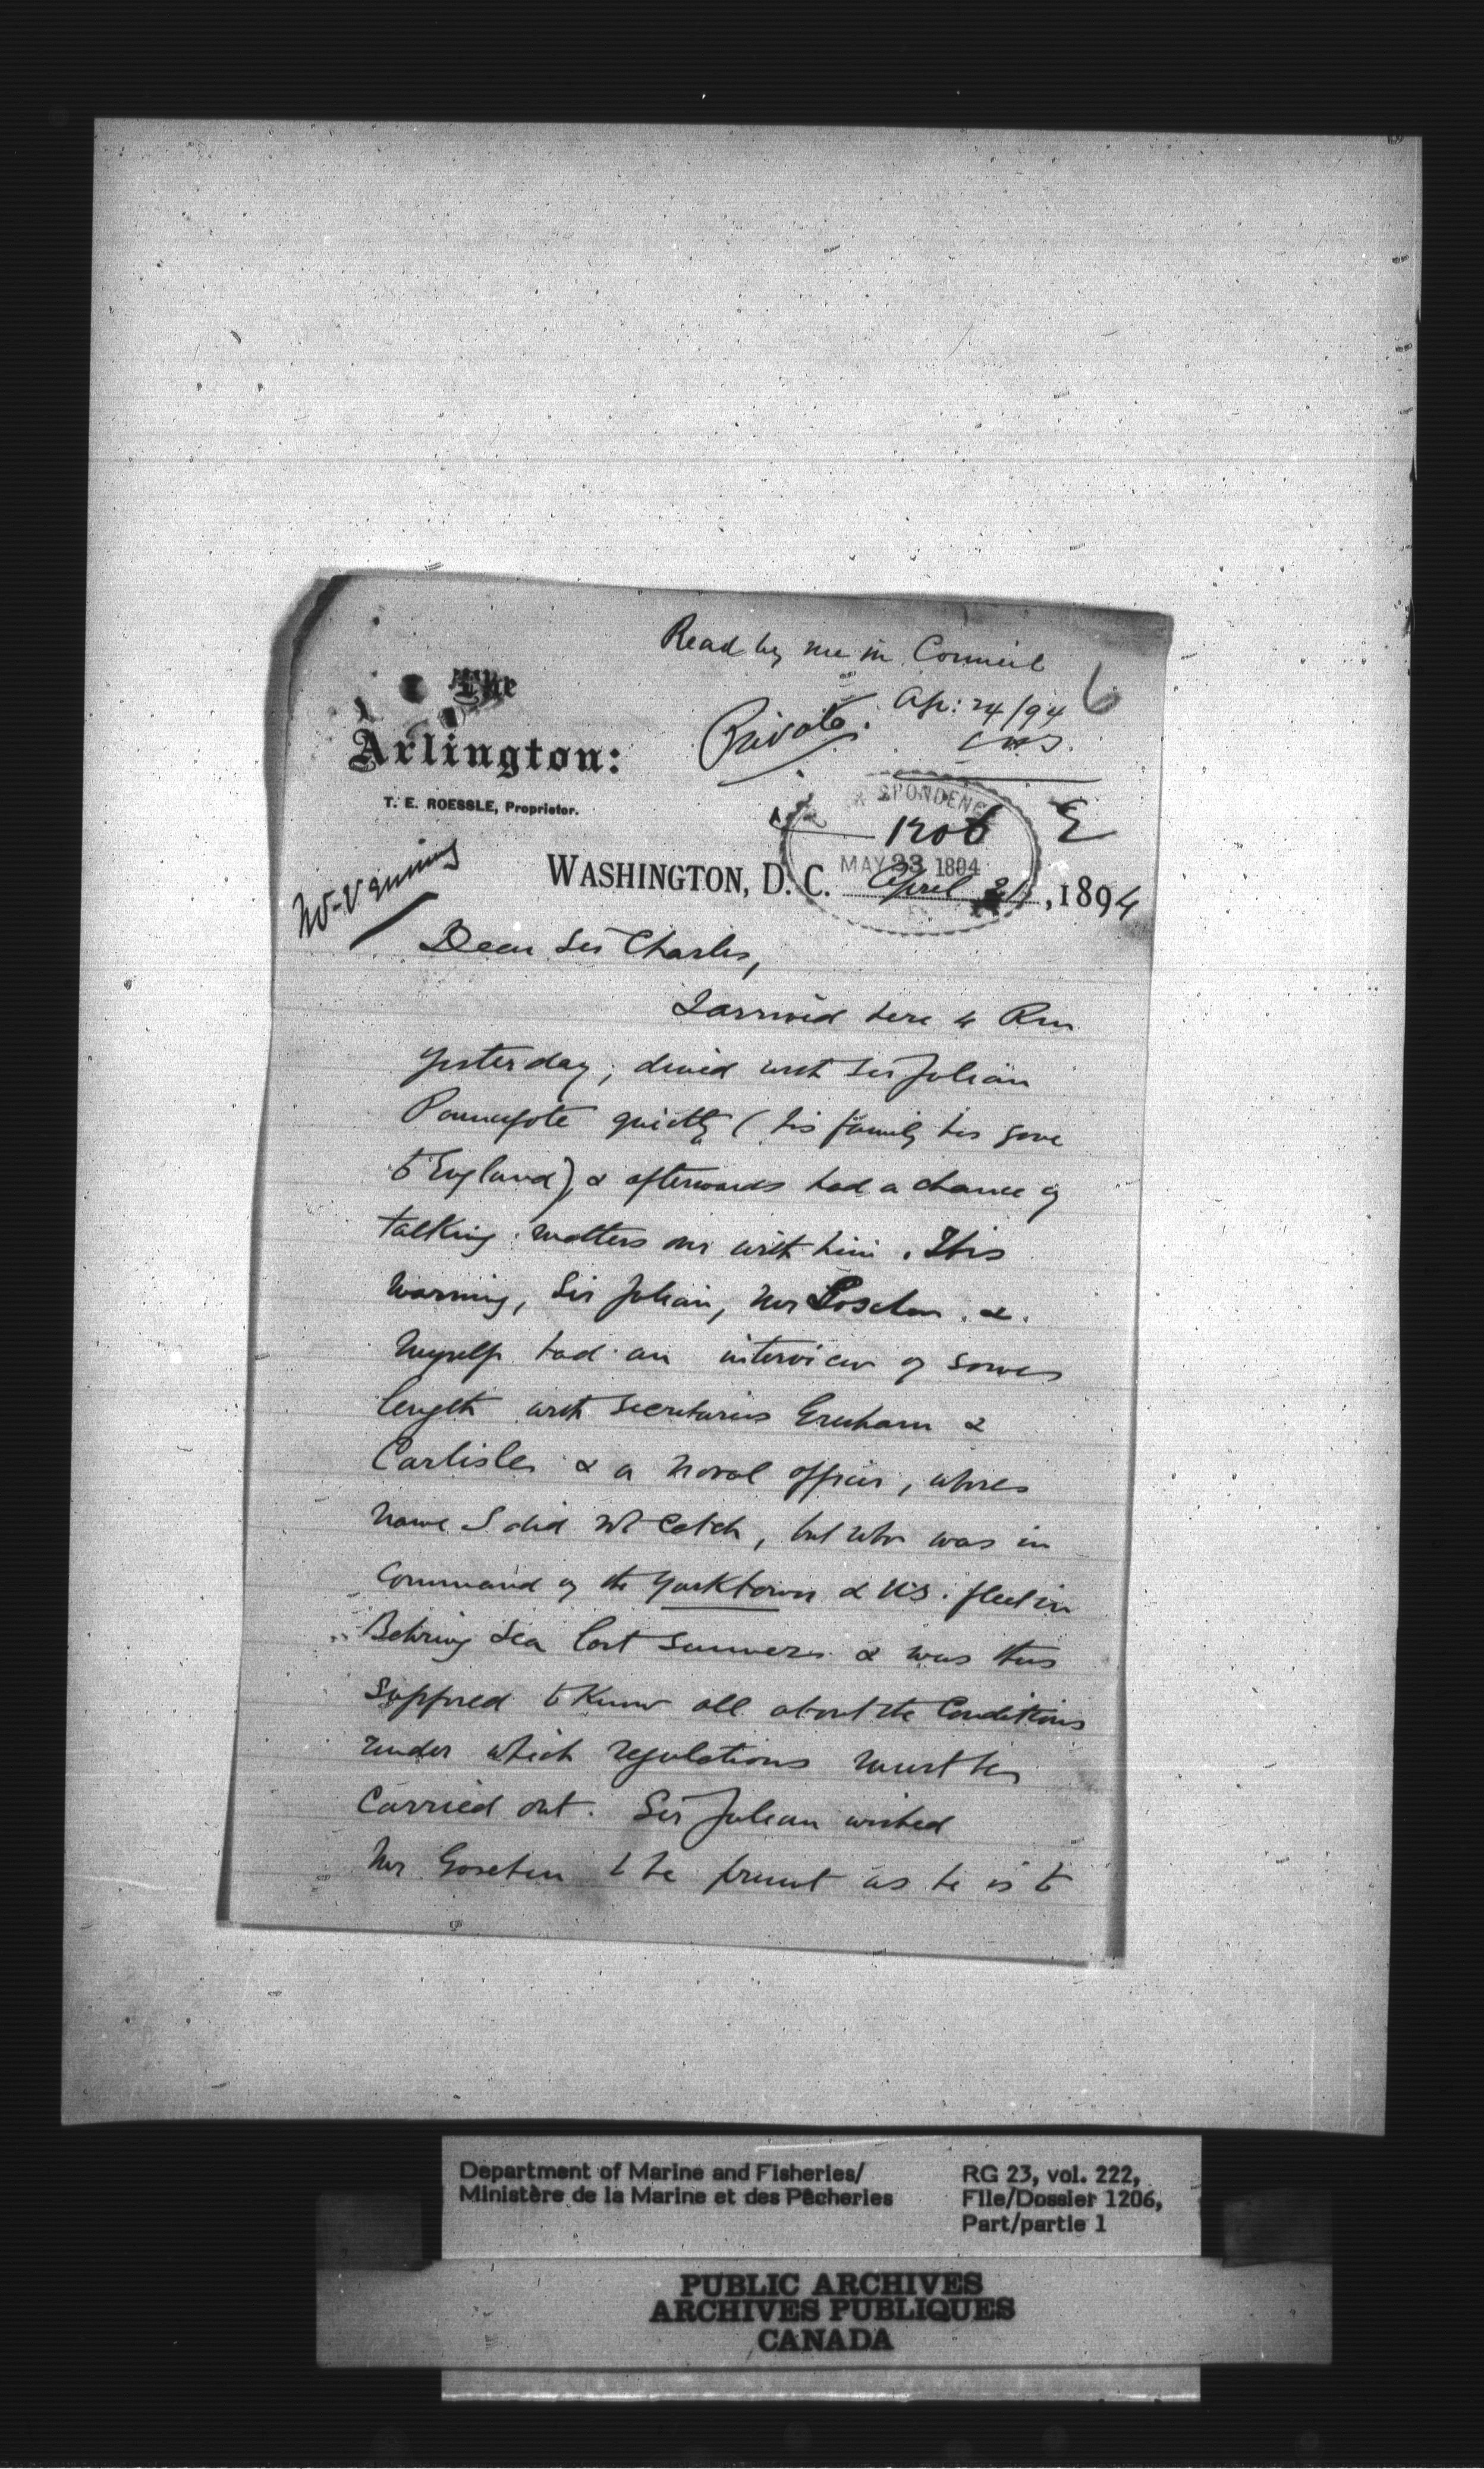 Read by me in Council
6
Ap: 24/94
Private.
The
Arlington:
T. E. ROESSLE, Proprietor.
SPONDENC
1206
E
MAY 23 1894
WASHINGTON, D. C. April 21, 1894
Dear Sir Charles,
I arrived here 4 P.m
yesterday; dined with Sir Julian
Pauncefote quietly (his family has gone
to England) & afterwards had a chance of
talking matters over with him. This
morning, Sir Julian, Mr Goschen &
myself had an interview of some
length with Secretaries Gresham &
Carlisle & a naval officer, whose
name I did not catch, but who was in
command of the Yorktown & U.S. fleet in
Behring Sea last summer & was thus
supposed to know all about the conditions
under which regulations must be
carried out. Sir Julian wished
Mr Goschen to be present as he is to
Department of Marine and Fisheries/
Ministère de la Marine et des Pêcheries
RG 23, vol. 222,
File/Dossier 1206,
Part/partie 1
PUBLIC ARCHIVES
ARCHIVES PUBLIQUES
CANADA